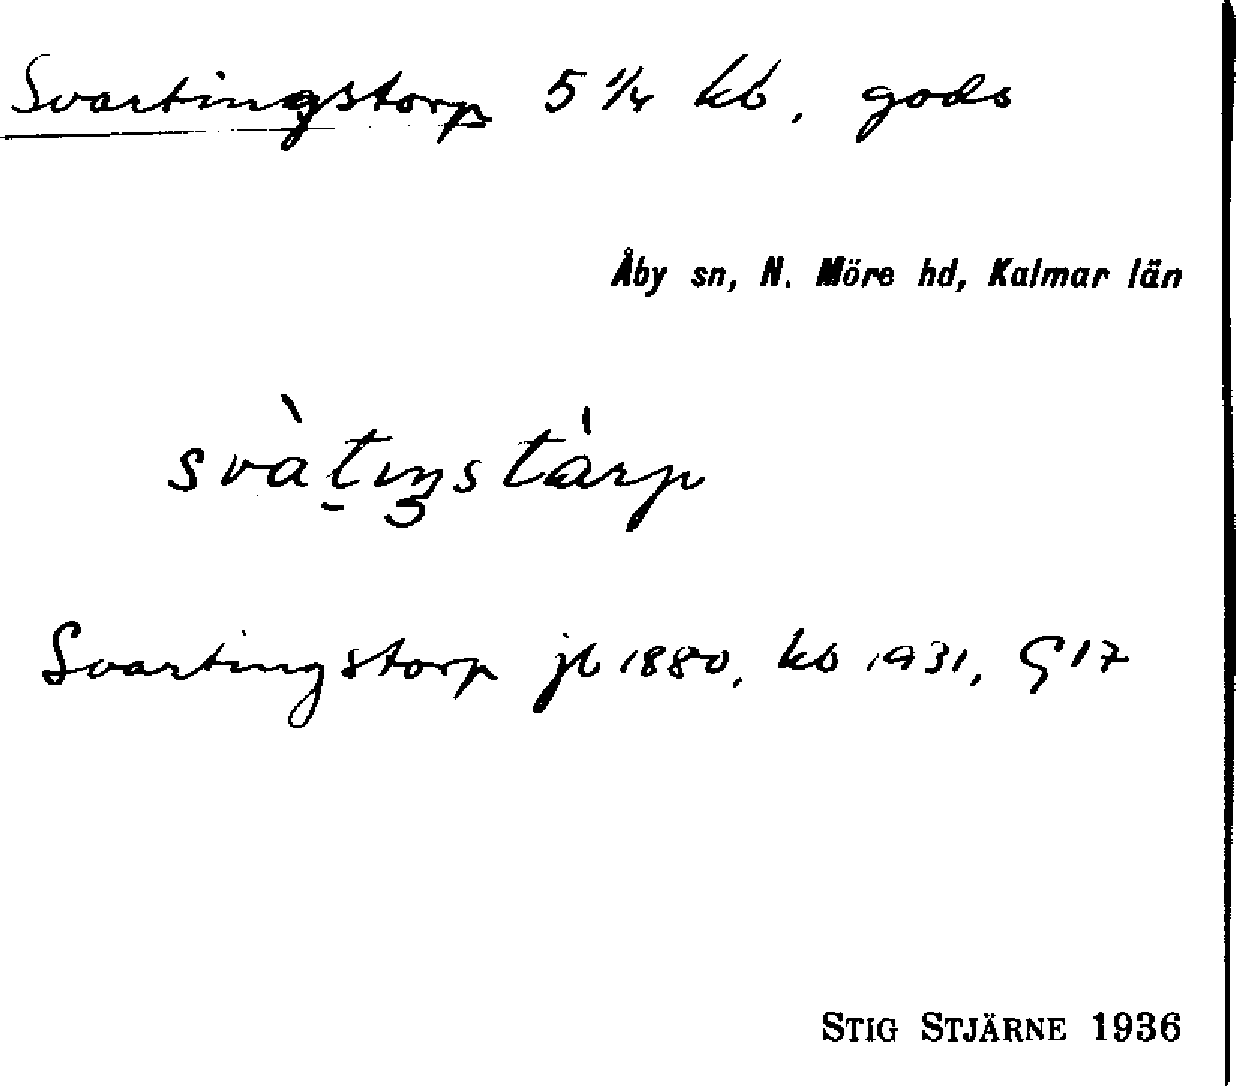 Svartingstorp 5 1/4 kb, gods
Åby sn, N. Möre hd, Kalmar län
svàt̠ıŋstàrp
Svartingstorp jb 1880, kb 1931, G 17
STIG STJÄRNE 1936